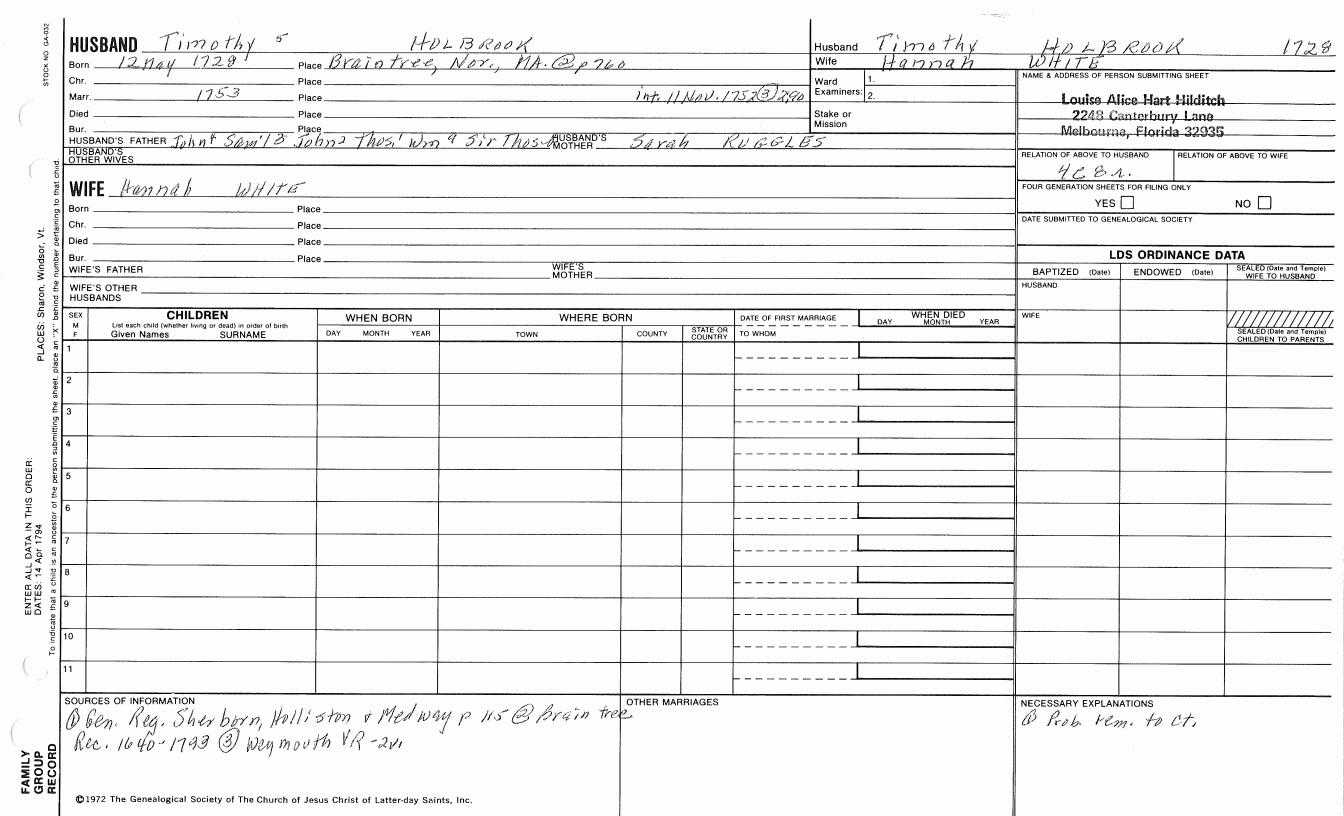 STOCK NO. GA-032
PLACES: Sharon, Windsor, Vt.
ENTER ALL DATA IN THIS ORDER:
DATES: 14 Apr 1794
To indicate that a child is an ancestor of the person submitting the sheet, place an "X" behind the number pertaining to that child.
FAMILY
GROUP
RECORD
HUSBAND Timothy 5 HOLBROOK
Born 12 May 1728 Place Braintree, Nor., MA. @ p760
Chr. Place
Marr. 1753 Place int. 11 Nov. 1752 ③ 2:90
Died Place
Bur. Place
HUSBAND'S FATHER John4 Sam'l3 John2 Thos1 Wm a Sir Thos HUSBAND'S MOTHER Sarah RUGGLES
HUSBAND'S
OTHER WIVES
WIFE Hannah WHITE
Born Place
Chr. Place
Died Place
Bur. Place
WIFE'S FATHER WIFE'S MOTHER
WIFE'S OTHER
HUSBANDS
Husband Timothy HOLBROOK 1728
Wife Hannah WHITE
Ward 1.
Examiners: 2.
Stake or
Mission
NAME & ADDRESS OF PERSON SUBMITTING SHEET
Louise Alice Hart Hilditch
2248 Canterbury Lane
Melbourne, Florida 32935
RELATION OF ABOVE TO HUSBAND RELATION OF ABOVE TO WIFE
4C8r.
FOUR GENERATION SHEETS FOR FILING ONLY
YES NO
DATE SUBMITTED TO GENEALOGICAL SOCIETY
LDS ORDINANCE DATA
BAPTIZED (Date) ENDOWED (Date) SEALED (Date and Temple) WIFE TO HUSBAND
HUSBAND
WIFE
SEALED (Date and Temple)
CHILDREN TO PARENTS
SEX
M
F
CHILDREN
List each child (whether living or dead) in order of birth
Given Names SURNAME
WHEN BORN
DAY MONTH YEAR
WHERE BORN
TOWN COUNTY STATE OR COUNTRY
DATE OF FIRST MARRIAGE
TO WHOM
WHEN DIED
DAY MONTH YEAR
1
2
3
4
5
6
7
8
9
10
11
SOURCES OF INFORMATION
① Gen. Reg. Sherborn, Holliston & Medway p 115 @ Braintree
Rec. 1640-1793 ③ Weymouth VR-2v.
OTHER MARRIAGES
NECESSARY EXPLANATIONS
① Prob. rem. to Ct.
©1972 The Genealogical Society of The Church of Jesus Christ of Latter-day Saints, Inc.